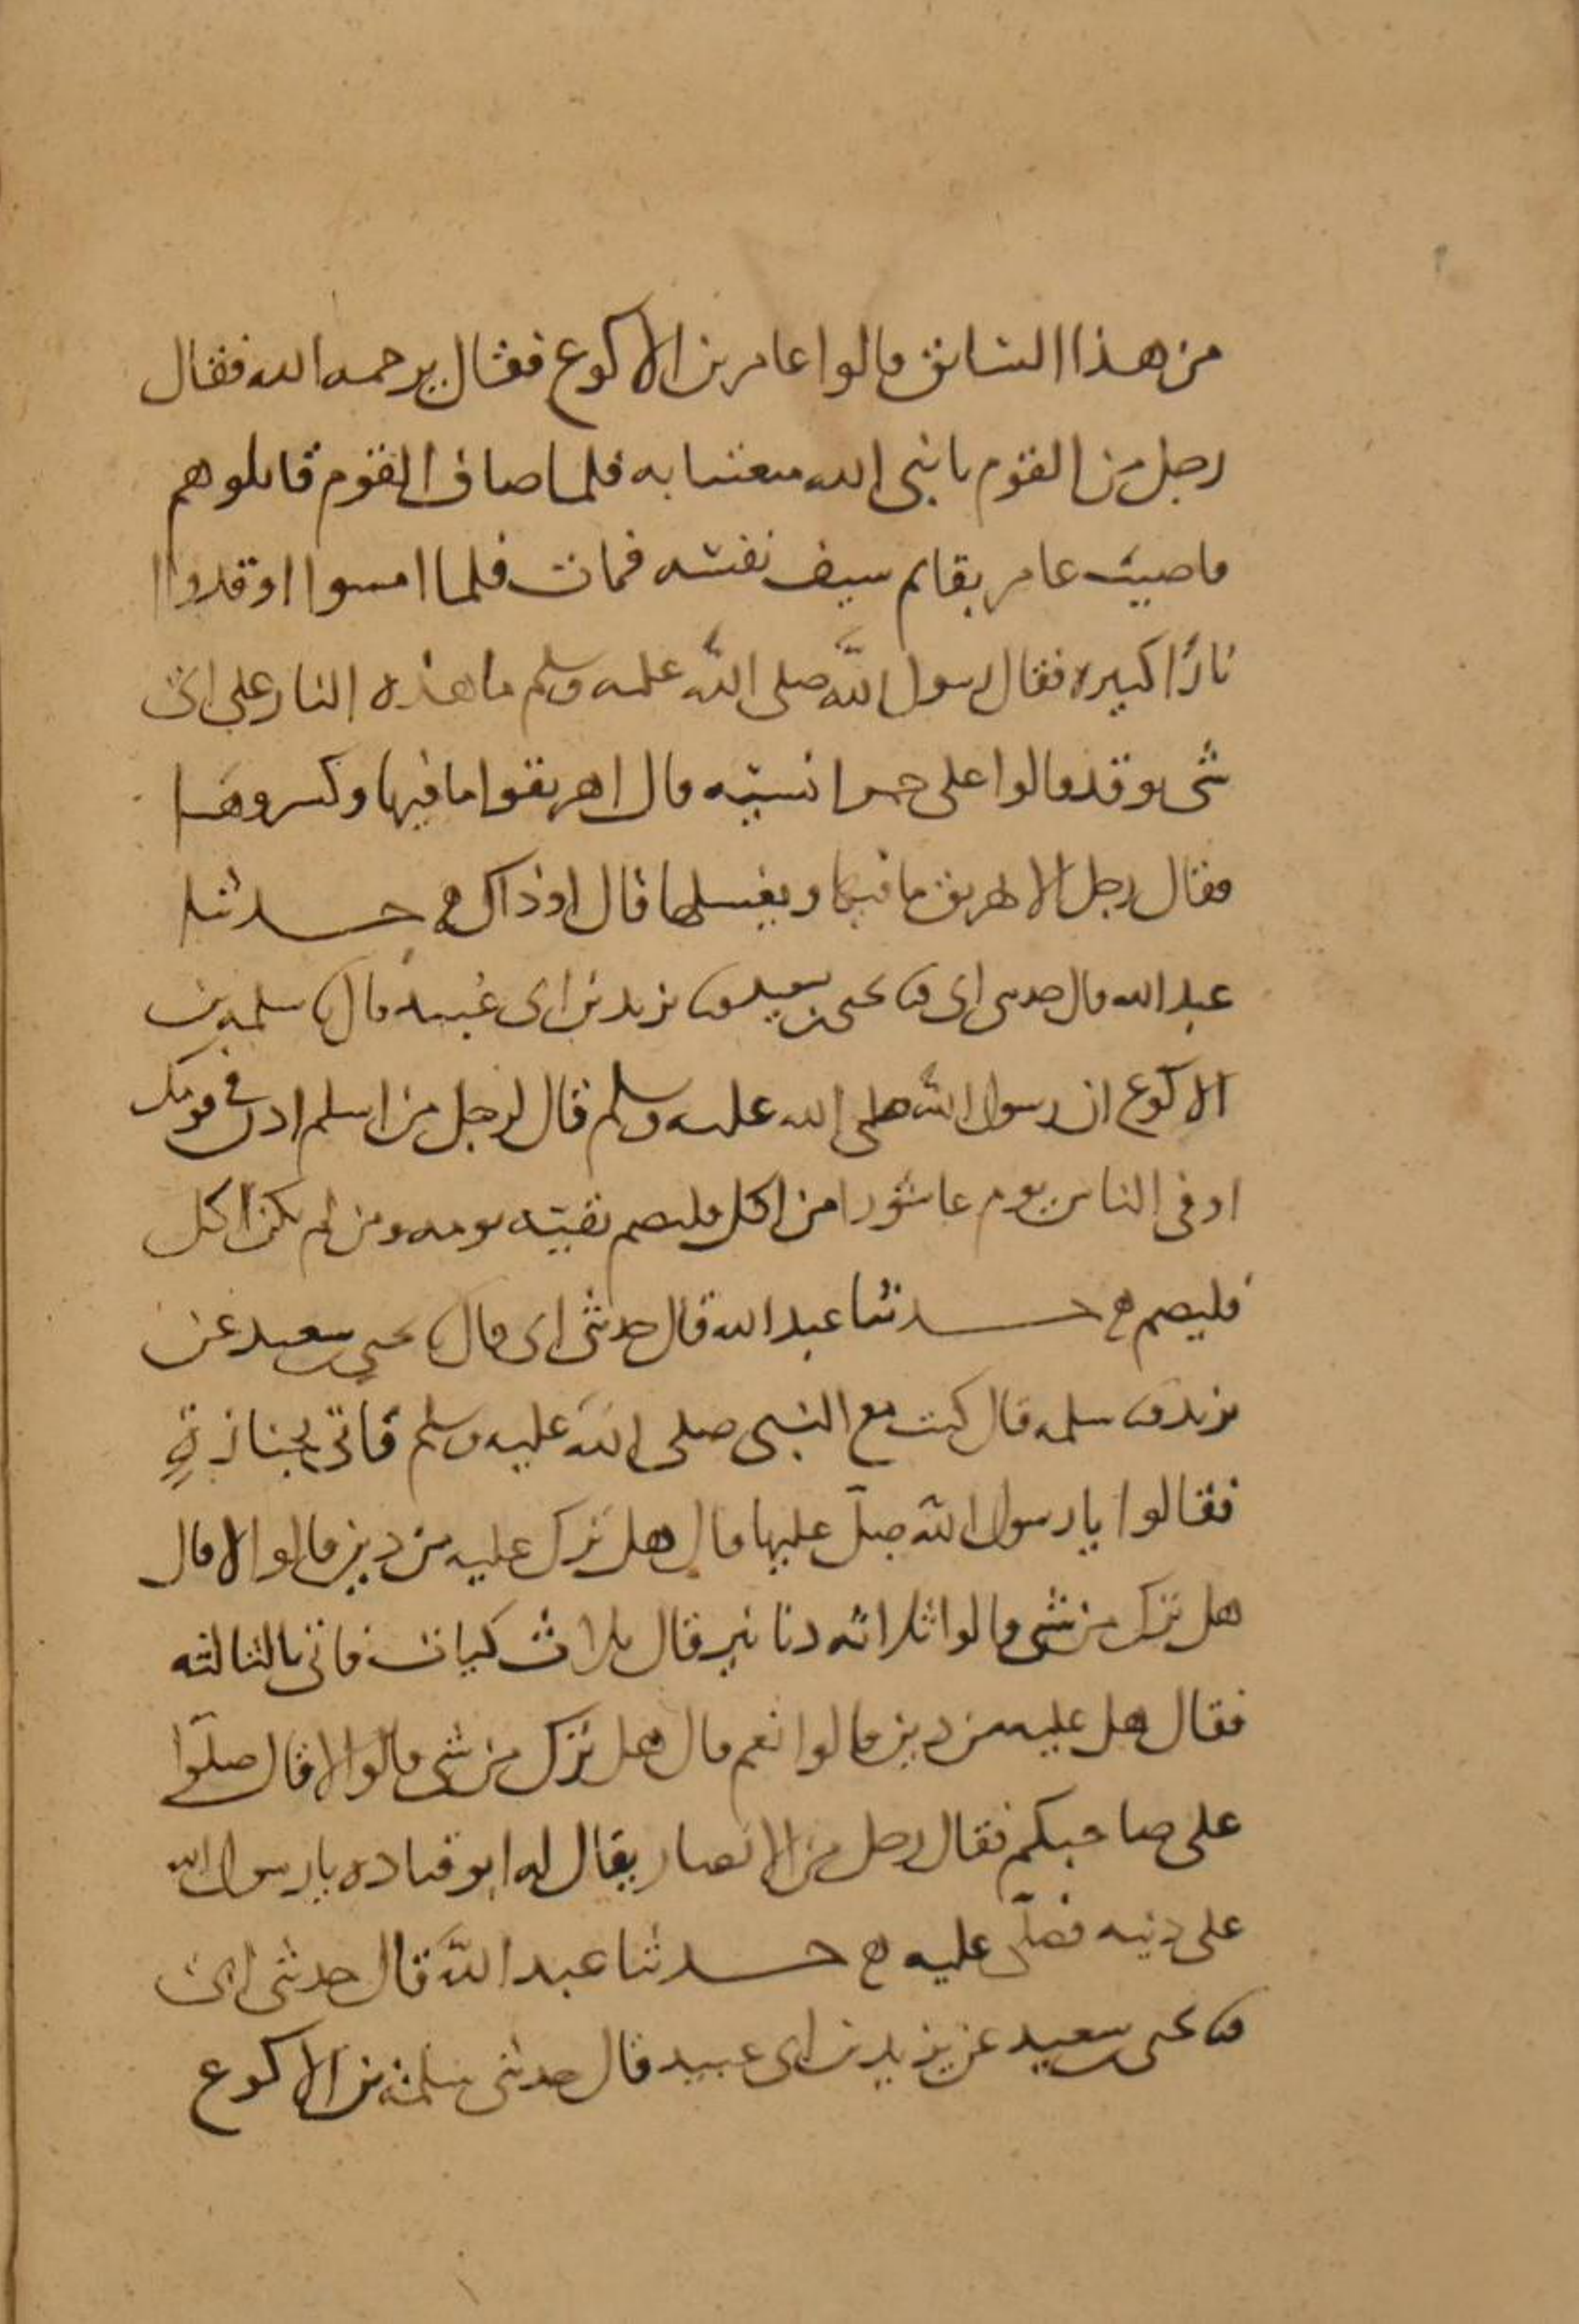 من هذا السائق قالوا عامر بن الاكوع فقال يرحمه الله فقال
رجل من القوم يا نبي الله متعتنا به فلما صاف القوم قاتلوهم
فاصيب عامر بقايم سيف نفسه فمات فلما امسوا اوقدوا
نارًا كبيره فقال رسول الله صلى الله عليه وسلم ما هذه النار على اي
شى يوقد قالوا على حمر انسيه قال اهريقوا ما فيها وكسروها
فقال رجل الا نهريق ما فيها ونغسلها قال او ذاك ه حدثنا
عبد الله قال حدثني ابي ثنا يحيى بن سعيد ثنا يزيد بن ابي عبيد قال ثنا سلمه بن
الاكوع ان رسول الله صلى الله عليه وسلم قال لرجل من اسلم اذن في قومك
او في الناس يوم عاشورا من اكل فليصم بقيته يومه ومن لم يكن اكل
فليصم ه حدثنا عبد الله قال حدثني ابي قال ثنا يحيى بن سعيد عن
يزيد ثنا سلمه قال كنت مع النبي صلى الله عليه وسلم فاتي بجنازةٍ
فقالوا يا رسول الله صلّ عليها قال هل ترك عليه من دين قالوا لا قال
هل ترك من شي قالوا ثلاثه دنانير قال ثلاث كيات فاتي بالثالثه
فقال هل عليه من دين قالوا نعم قال هل ترك من شي قالوا لا قال صلّوا
على صاحبكم فقال رجل من الانصار يقال له ابو قتاده يا رسول الله
على دينه فصلّى عليه ه حدثنا عبد الله قال حدثني ابي
ثنا يحيى بن سعيد عن يزيد بن ابي عبيد قال حدثني سلمة بن الاكوع